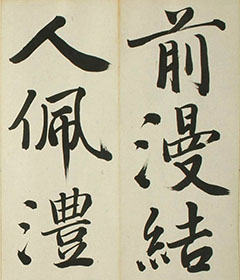 前漫結
人佩澧